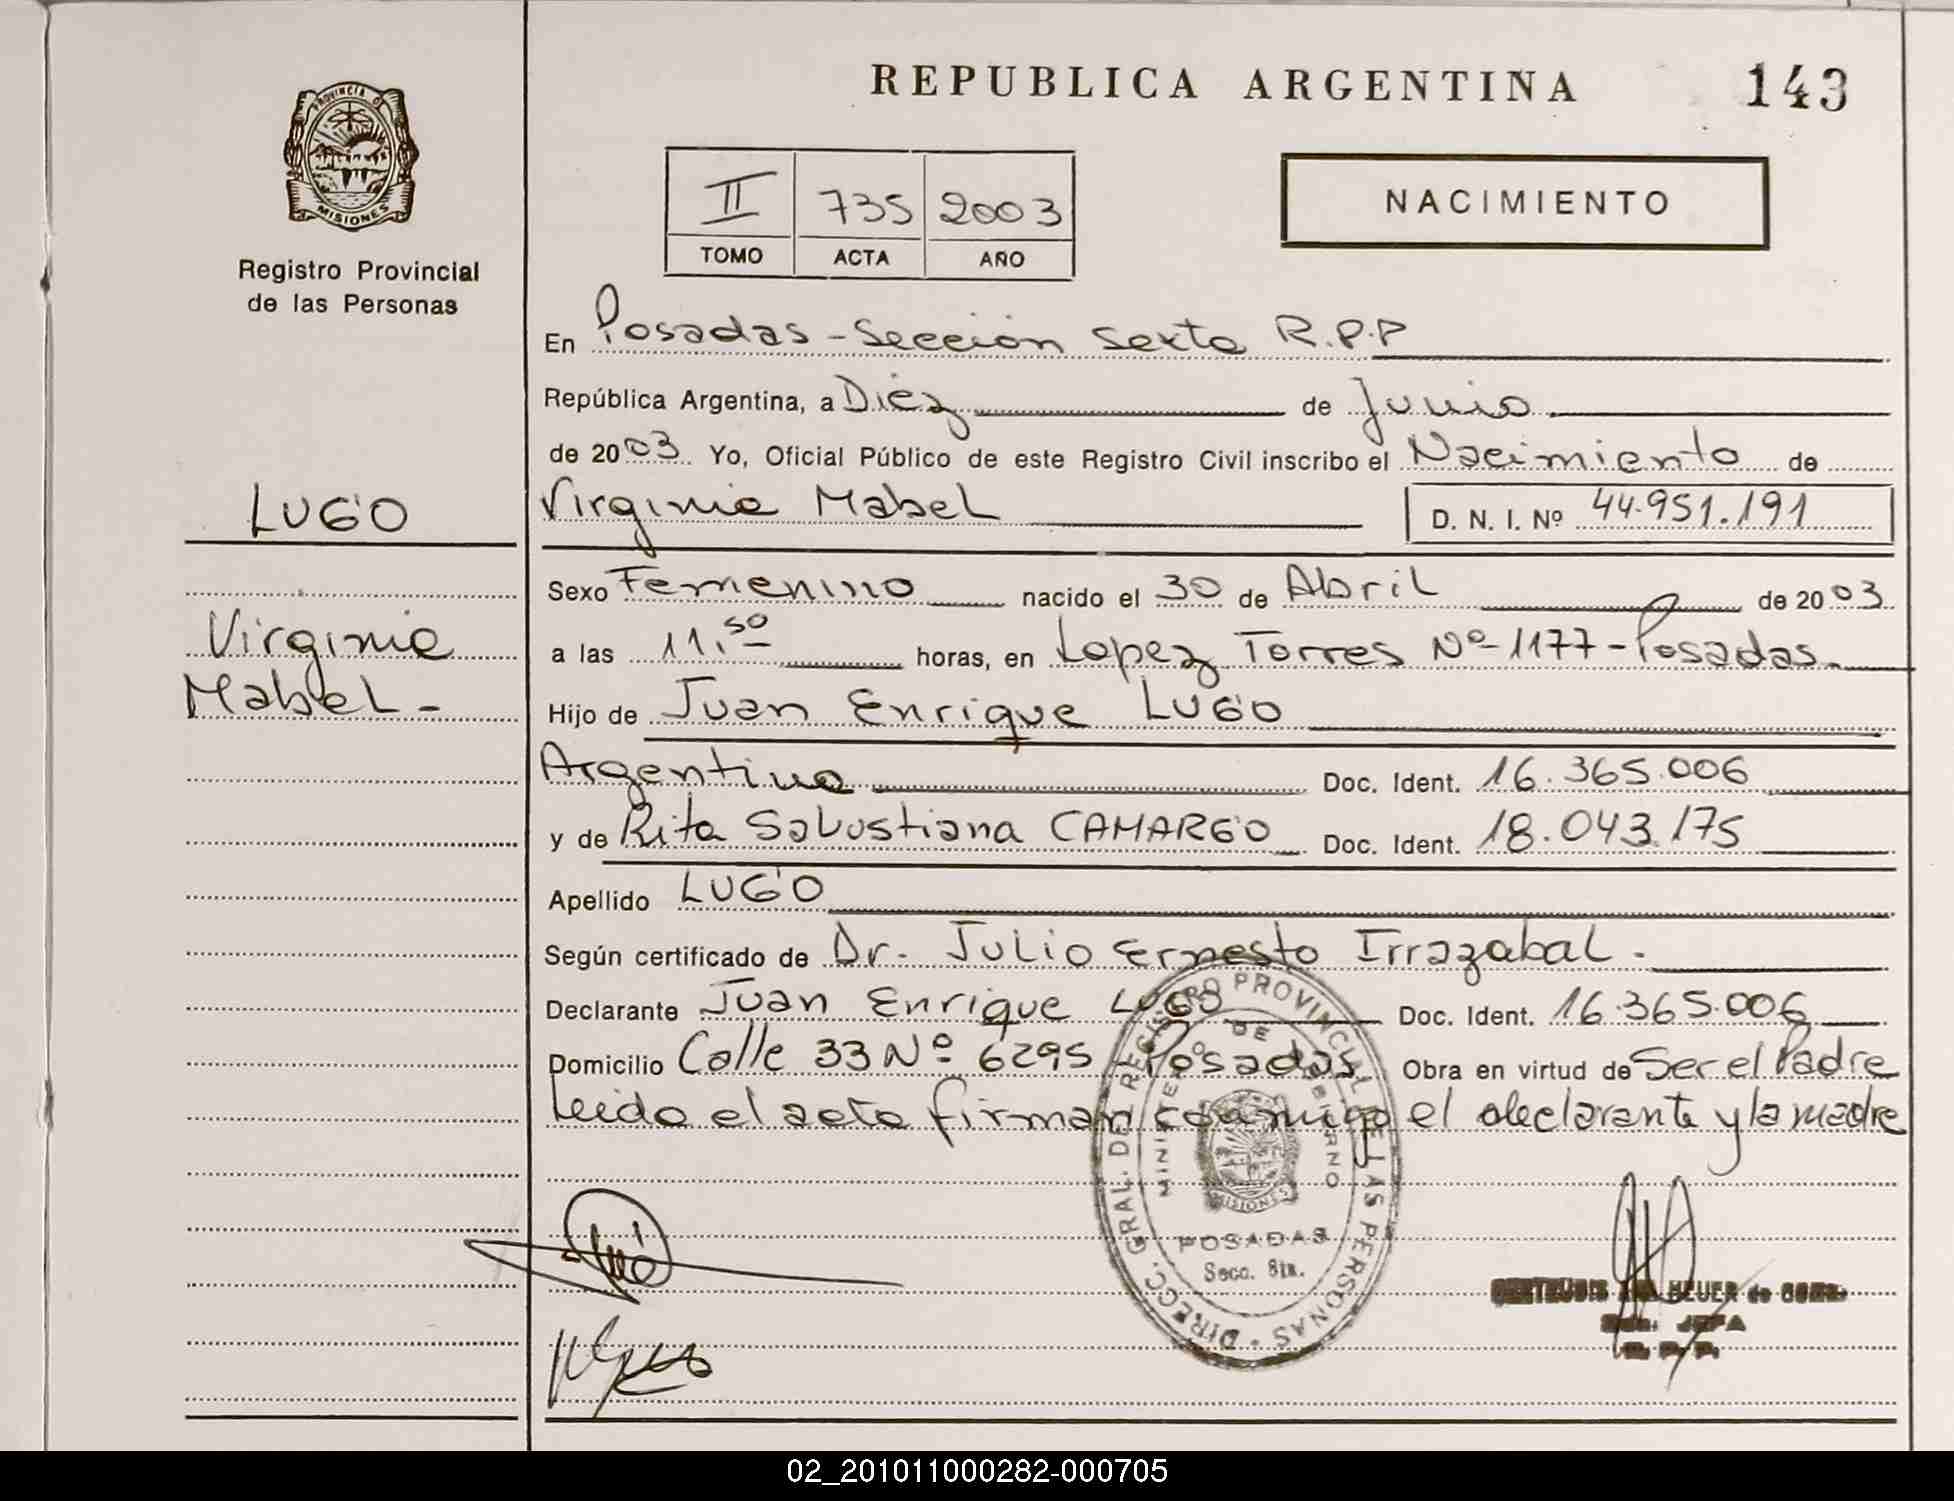 REPUBLICA ARGENTINA 143
PROVINCIA DE
MISIONES
Registro Provincial
de las Personas
II 735 2003
TOMO ACTA AÑO
NACIMIENTO
En Posadas - Sección Sexta R.P.P
República Argentina, a Diez de Junio
de 2003. Yo, Oficial Público de este Registro Civil inscribo el Nacimiento de
LUGO
Virginia Mabel D. N. I. Nº 44.951.191
Sexo Femenino nacido el 30 de Abril de 2003
Virginia
Mabel -
a las 11.50 horas, en Lopez Torres Nº 1177 - Posadas
Hijo de Juan Enrique LUGO
Argentina Doc. Ident. 16.365.006
y de Rita Salustiana CAMARGO Doc. Ident. 18.043.175
Apellido LUGO
Según certificado de Dr. Julio Ernesto Irrazabal -
Declarante Juan Enrique LUGO Doc. Ident. 16.365.006
Domicilio Calle 33 Nº 6295 - Posadas Obra en virtud de Ser el Padre
Leido el acta firman conmigo el declarante y la madre
DIRECC. GRAL. DE REGISTRO PROVINCIAL DE LAS PERSONAS
MINISTERIO DE GOBIERNO
MISIONES
POSADAS
Secc. 6ta.
HEUER de
JEFA
R. P. P.
02_201011000282-000705